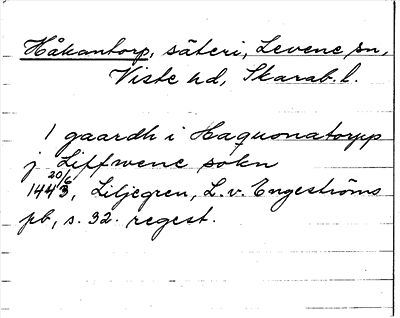 Håkantorp, säteri, Levene sn,
Viste hd, Skarab. l.
1 gaardh i Haquonatorpp
j Liffwene sokn
20/6
1443, Liljegren, L. v. Engeströms
pb, s. 32. regest.